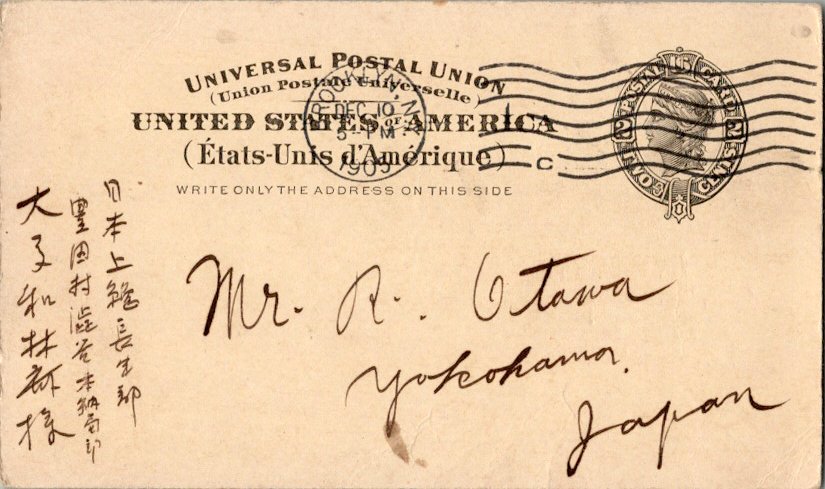 UNIVERSAL POSTAL UNION
(Union Postale Universelle)
UNITED STATES OF AMERICA
(États-Unis d'Amérique)
WRITE ONLY THE ADDRESS ON THIS SIDE
BROOKLYN, N.Y.
DEC 10
5-PM
1905
C
POSTAL CARD
2 2
TWO CENTS
Mr. R. Otawa
Yokohama.
Japan
日本上総長生郡
豊田村渋谷本納局
大和林 様